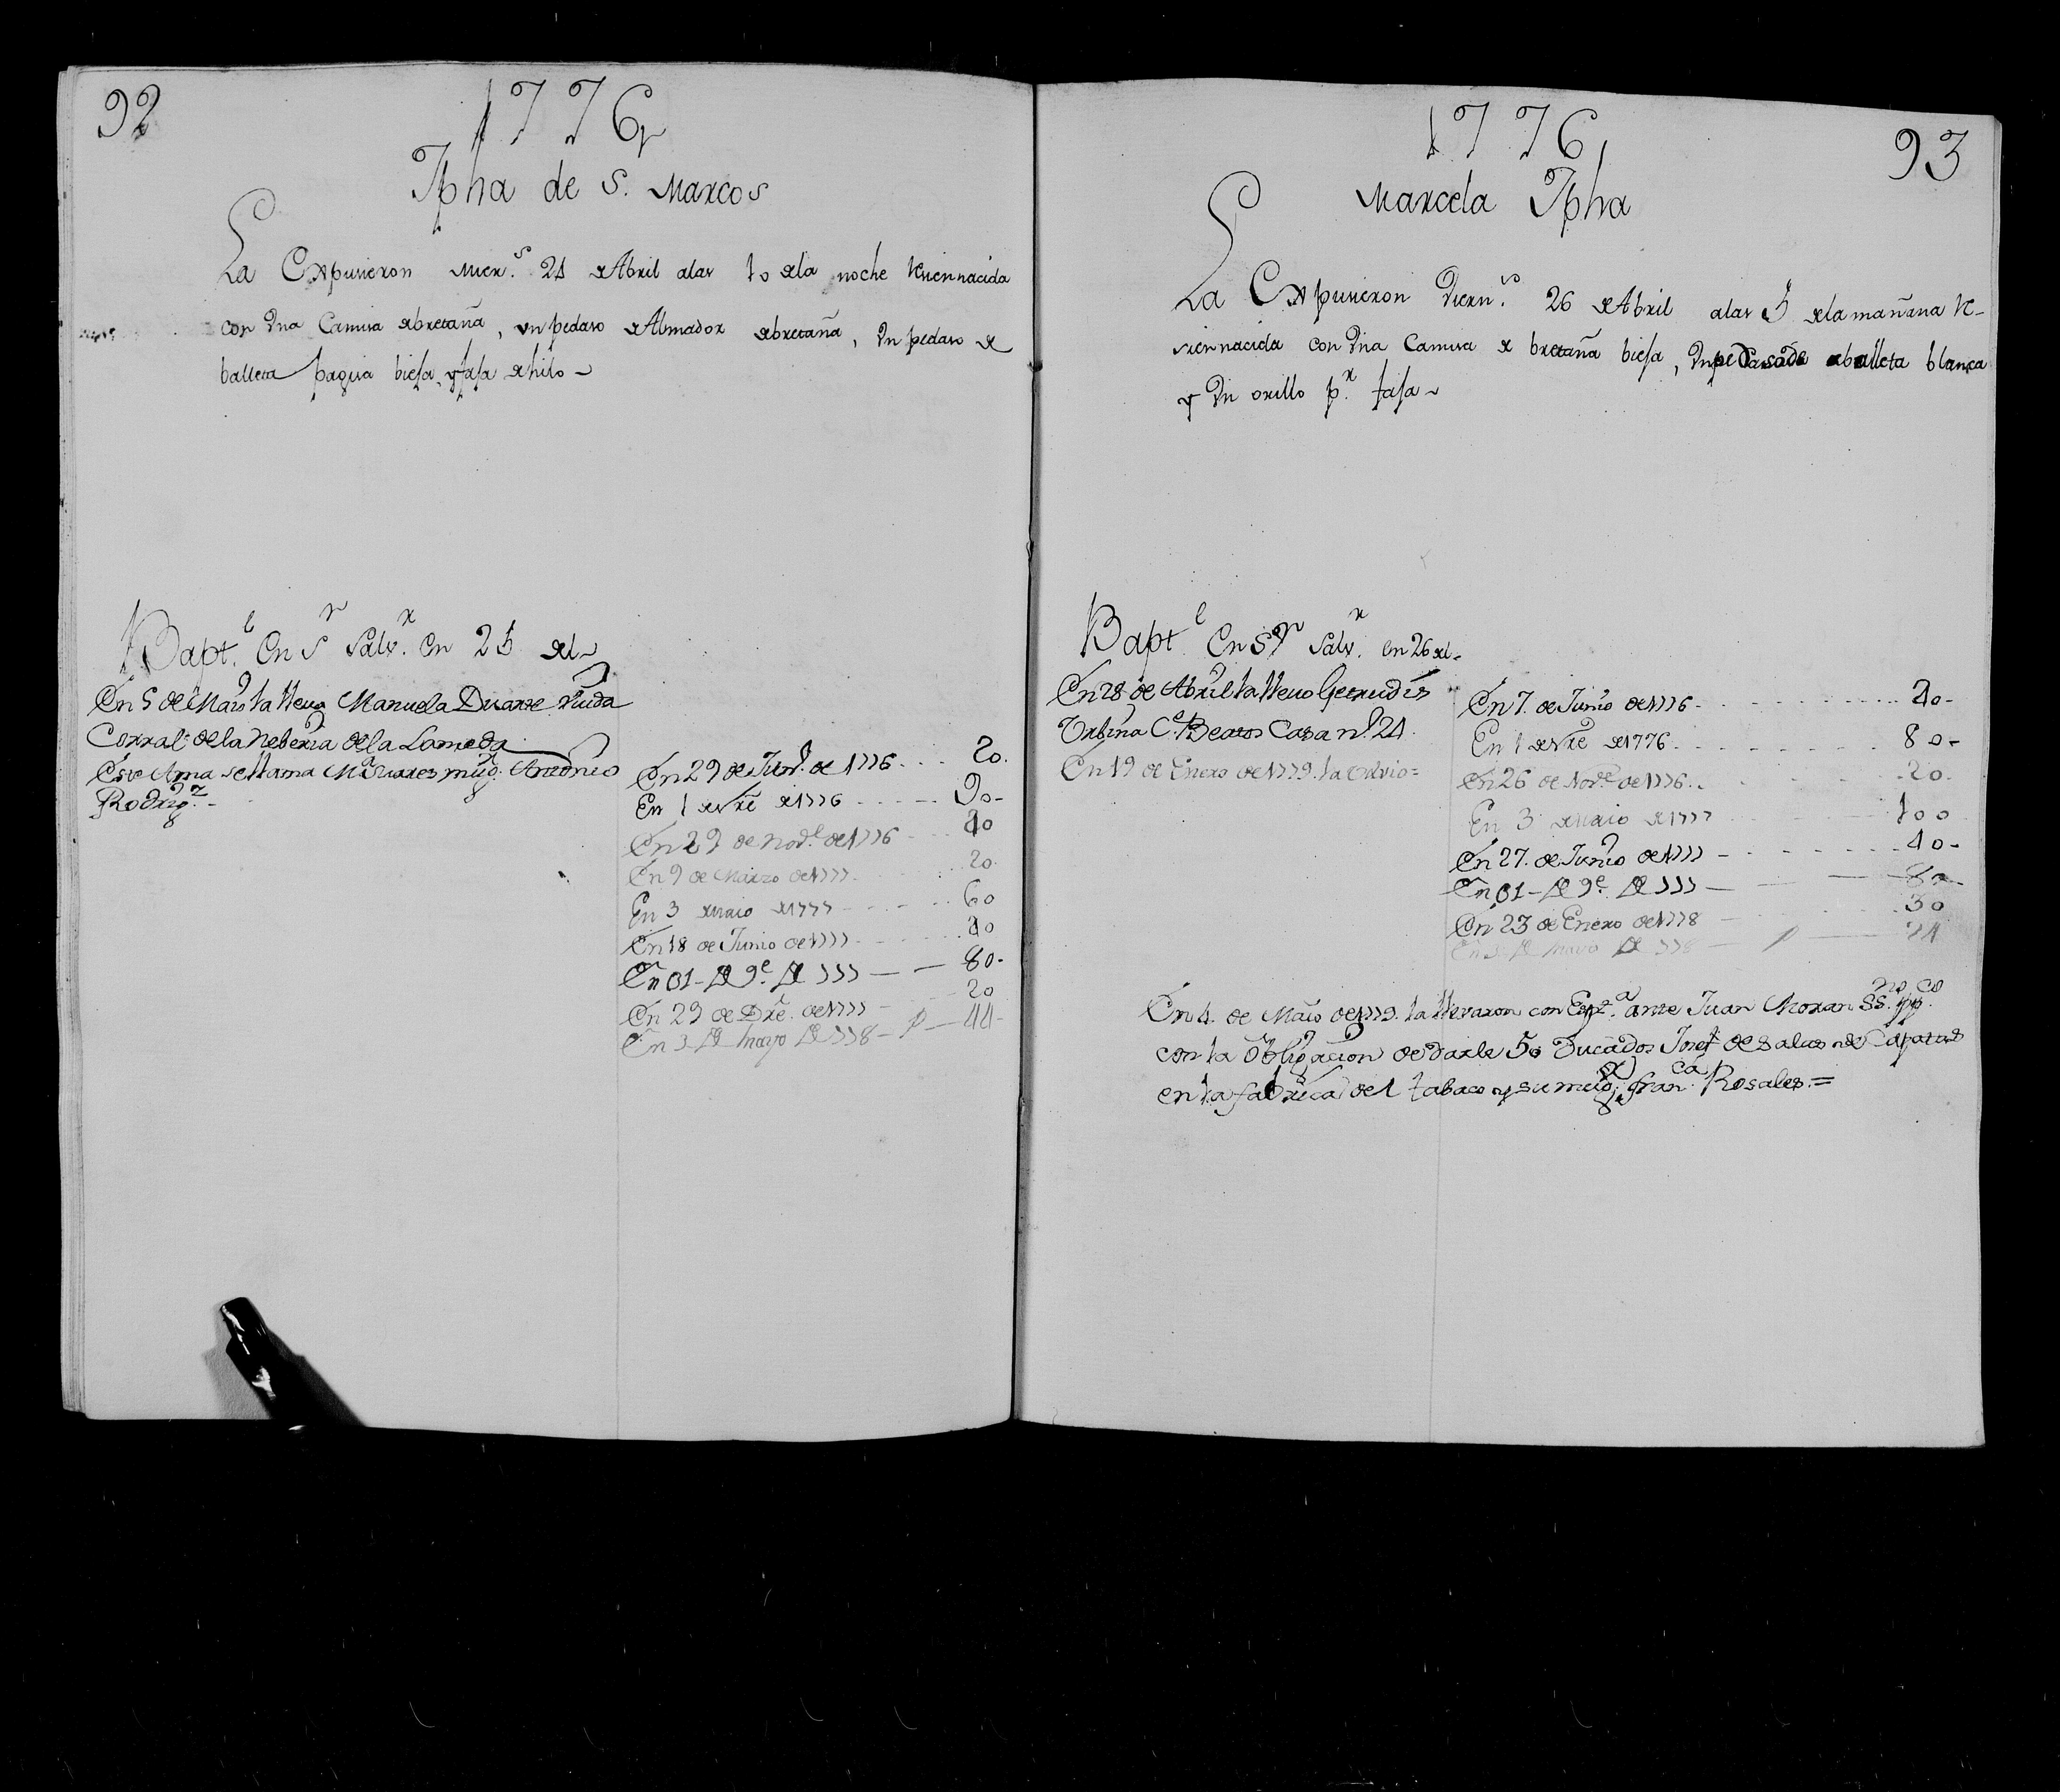 92
1776
Jpha de S. Marcos
La Expusieron Mier.s 24 de Abril alas 10 dela noche Resiennacida
con Vna Camisa de bretaña, vn pedaso de Almador de bretaña, Vn pedaso de
balleta paqisa biefa, y fafa de hilo
Bapt. en Sn Salvr. en 25 del
En 5 de Maio la llevo Manuela Duarte Viuda
Corral de la Neberia de la Lameda
Este Ama se llama Ma Suares mug. Antonio
Rodrigz.
En 29 de Jun. de 1776 . . . . 20.
En 1 de Vre de 1776 . . . . . 90-
En 29 de Nove. de 1776 . . . 40
En 9 de Marzo de 1777 . . . 20.
En 3 de Maio de 1777 . . . . 60
En 18 de Junio de 1777 . . . . 40
En 01 - de 9e. de 777 — — 80-
En 29 de Dre. de 1777 . . . 20
En 3 de Mayo de 778 - p - 44-
93
1776
Marcela Jpha
La Expusieron Viern.s 26 de Abril alas 5 dela mañana Re-
siennacida con Vna Camisa de bretaña biefa, Vn pedasode de balleta blanca
y Vn orillo pr. fafa
Bapt. en Sn Salvr. en 26 del
En 28 de Abril la llevo Gertrudis
Urbina Ce. Beatos Casa no. 24.
En 19 de Enero de 1779. la volvio=
En 7. de Junio de 1776 - . . . . . . 40-
En 1 de Vre de 1776 . . . . . . 80-
En 26 de Nove. de 1776 . . . . . 20.
En 3 de Maio de 1777 . . . . . 100
En 27. de Junio de 1777 - . . . . . 40-
En 01 - de 9e. de 777 — — — 80-
En 23 de Enero de 1778 . . . . 30
En 3 de Mayo de 778 — p — 24
En 4. de Maio de 1779. la llevaron con Esza. ante Juan Moran SS.no ppco.
con la Obligacion de darle 50 Ducados Josef de Salas Capatas
en la fabrica del tabaco y su muger franca. Rosales.=